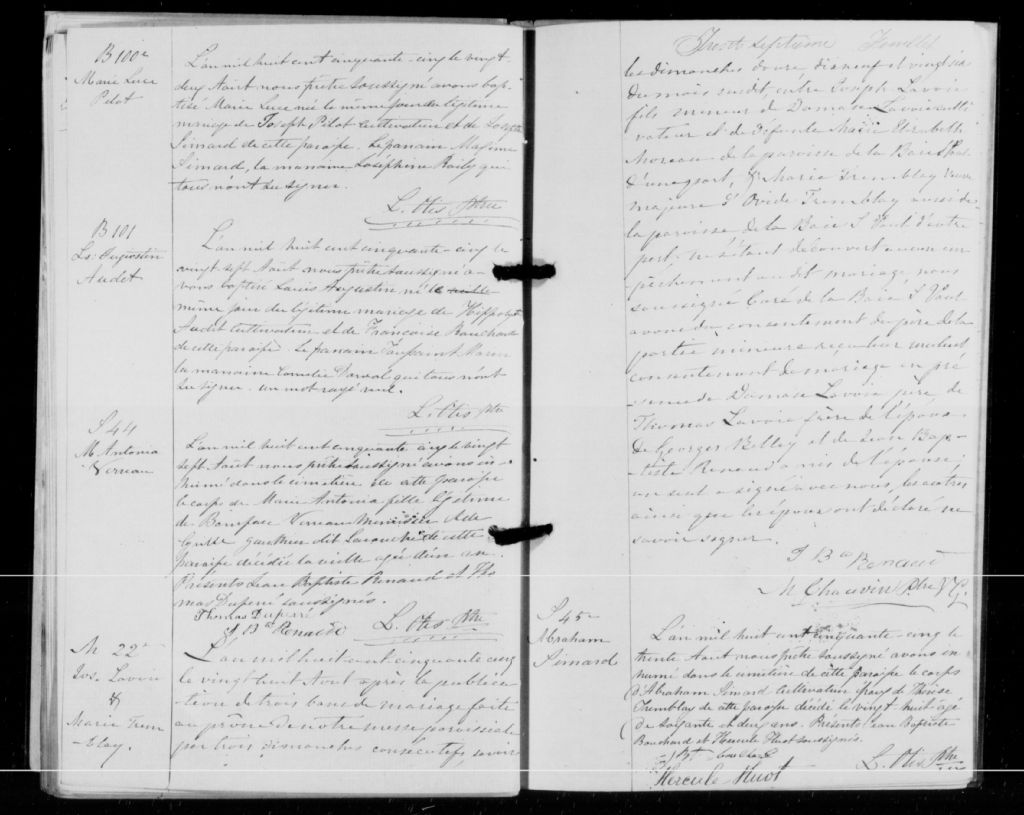 B 100e
Marie Luce
Pilot
L'an mil huit cent cinquante-cinq le vingt
deux Août nous prêtre soussigné avons bap-
tisé Marie Luce née le même jour du légitime
mariage de Joseph Pilot cultivateur et de Josephte
Simard de cette paroisse. Le parrain Magime
Simard, la marraine Joséphine Baily qui
tous n'ont su signer.
L. Otis Ptre
B 101
Ls. Augustin
Audet
L'an mil huit cent cinquante-cinq le
vingt sept Août nous prêtre soussigné a-
vons baptisé Louis Augustin né le
même jour du légitime mariage de Hippolyte
Audet cultivateur et de Françoise Bouchard
de cette paroisse. Le parrain Toussaint
la marraine Cornélie Dorval qui tous n'ont
su signer. un mot rayé nul.
L. Otis Ptre
S 44
M. Antonia
Verreau
L'an mil huit cent cinquante cinq le vingt
sept Août nous prêtre soussigné avons in-
humé dans le cimetière de cette paroisse
le corps de Marie Antonia fille légitime
de Boniface Verreau Menuisier & de
Gauthier dit Larouche de cette
paroisse décédée la veille agée d'un an.
Présents Jean Baptiste Renaud et Tho
mas Duperé soussignés.
Thomas Duperré
J Bte Renaud L. Otis Ptre
M 22e
Jos. Lavoie
&
Marie Trem
-blay.
L'an mil huit cent cinquante cinq
le vingt huit Août après la publica-
tion de trois bans de mariage faite
au prône de notre messe paroissiale
par trois dimanches consécutifs, savoir
Trente septième Feuillet
les dimanches douze, dix neuf et vingt six
du mois susdit, entre Joseph Lavoie
fils mineur de Damase Lavoie culti-
vateur et de défunte Marie Elizabeth
Moreau de la paroisse de la Baie St Paul
d'une part, & Marie Tremblay veuve
majeure d'Ovide Tremblay aussi de
la paroisse de la Baie St Paul d'autre
part; ne s'étant découvert aucun em-
pêchement au dit mariage, nous
soussigné Curé de la Baie St Paul
avons du consentement du père de la
partie mineure reçu leur mutuel
consentement de mariage en pré
-sence de Damase Lavoie père de
Thomas Lavoie frère de l'époux
de Georges Belley et de Jean Bap-
tiste Renaud amis de l'épouse
un seul a signé avec nous, les autres
ainsi que les époux ont déclaré ne
savoir signer.
J Bte Renaud
M Chauvin Ptre V G.
S 45e
Abraham
Simard
L'an mil huit cent cinquante-cinq le
trente Août nous prêtre soussigné avons in-
humé dans le cimetière de cette paroisse le corps
d'Abraham Simard cultivateur époux de Thérèse
Tremblay de cette paroisse décédé le vingt huit agé
de soixante et deux ans. Présents Jean Baptiste
Bouchard et Hercule Huot soussignés.
J Bt Bouchard
Hercule Huot L. Otis Ptre